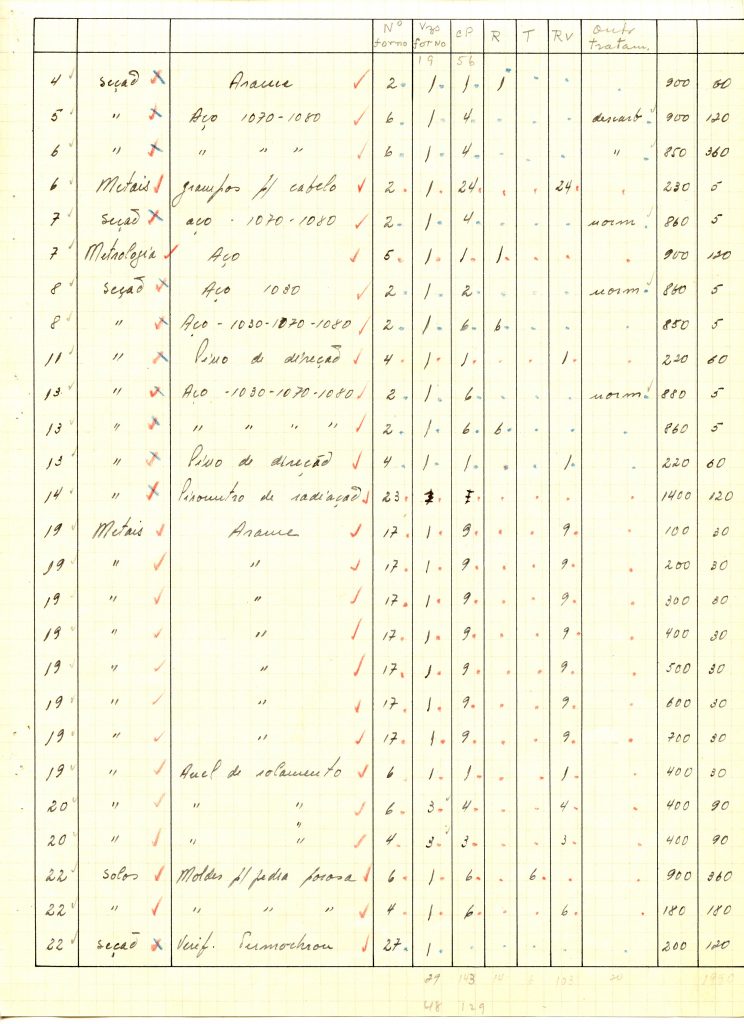 Nº forno Vzs forno CP R T RV outr tratam.
19 56
4 seçaõ Arame 2 1 1 1 900 60
5 " Aço 1070-1080 6 1 4 descarb. 900 120
6 " " " " 6 1 4 " 850 360
6 Metais grampos p/ cabelo 2 1 24 24 230 5
7 seçaõ aço - 1070-1080 2 1 4 norm. 860 5
7 Metrologia Aço 5 1 1 1 900 120
8 seçaõ Aço 1030 2 1 2 norm. 860 5
8 " Aço - 1030-1070-1080 2 1 6 6 850 5
11 " Pino de direçaõ 4 1 1 1 220 60
13 " Aço -1030-1070-1080 2 1 6 norm. 880 5
13 " " " " " 2 1 6 6 860 5
13 " Pino de direçaõ 4 1 1 1 220 60
14 " Pirometro de radiaçaõ 23 1400 120
19 Metais Arame 17 1 9 9 100 30
19 " " 17 1 9 9 200 30
19 " " 17 1 9 9 300 30
19 " " 17 1 9 9 400 30
19 " " 17 1 9 9 500 30
19 " " 17 1 9 9 600 30
19 " " 17 1 9 9 700 30
19 " Anel de rolamento 6 1 1 1 400 30
20 " " " 6 3 4 4 400 90
20 " " " 4 3 3 3 400 90
22 Solos Moldes p/ pedra porosa 6 1 6 6 900 360
22 " " " " 4 1 6 6 180 180
22 seçaõ Verif. Termochron 27 1 200 120
29 143 14 6 103 20 1950
48 129